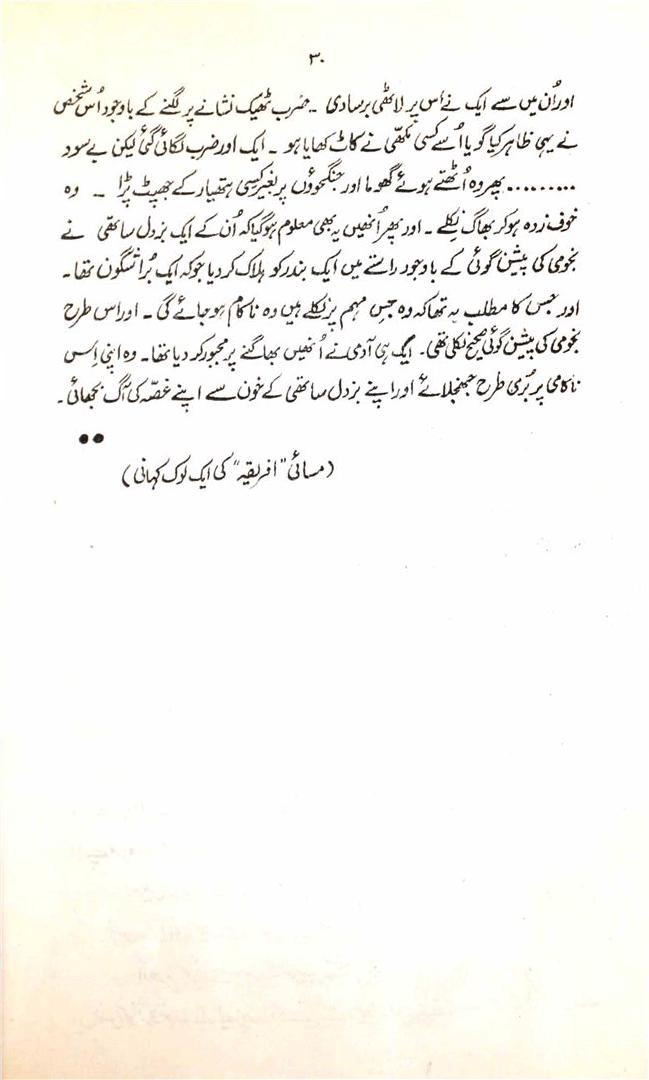 ۳۰
اور اُن میں سے ایک نے اُس پر لاٹھی برسادی ۔ ضرب ٹھیک نشانے پر لگنے کے باوجود اُس شخص
نے یہی ظاہر کیا گویا اُسے کسی مکھّی نے کاٹ کھایا ہو ۔ ایک اور ضرب لگائی گئی لیکن بے سود
......... پھر وہ اُٹھتے ہوئے گھوما اور جنگجوؤں پر بغیر کسِی ہتھیار کے جھپٹ پڑا ۔ وہ
خوف زدہ ہو کر بھاگ نکلے ۔ اور پھر اُنھیں یہ بھی معلوم ہو گیا کہ اُن کے ایک بزدل ساتھی نے
نجومی کی پیشن گوئی کے باوجود راستے میں ایک بندر کو ہلاک کر دیا جو کہ ایک بُرا شگون تھا ۔
اور جس کا مطلب یہ تھا کہ وہ جِس مہم پر نکلے ہیں وہ ناکام ہو جائے گی ۔ اور اس طرح
نجومی کی پیشن گوئی صحیح نکلی تھی ۔ ایک ہی آدمی نے اُنھیں بھاگنے پر مجبور کر دیا تھا ۔ وہ اپنی اِس
ناکامی پر بُری طرح جھنجلائے اور اپنے بزدل ساتھی کے خون سے اپنے غصّہ کی آگ بجھائی ۔
●●
(مسائی "افریقیہ" کی ایک لوک کہانی)